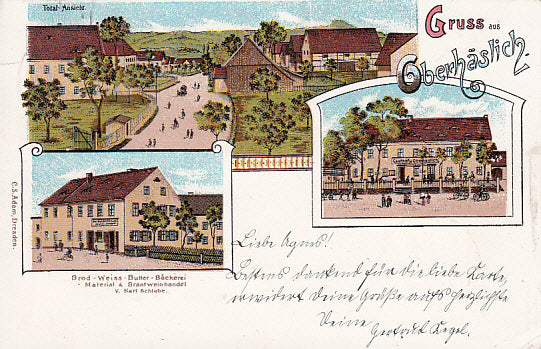 Total-Ansicht.
Gruss aus
Oberhäslich.
C.S. Adam, Dresden.
Brod-Weiss-Butter-Bäckerei
Material & Brantweinhandel
v. Karl Schlobe.
Liebe Agnes!
Bestens dankend für die liebe Karte,
erwidert Deine Grüße aufs herzlichste
Deine
Gertrud Kegel.